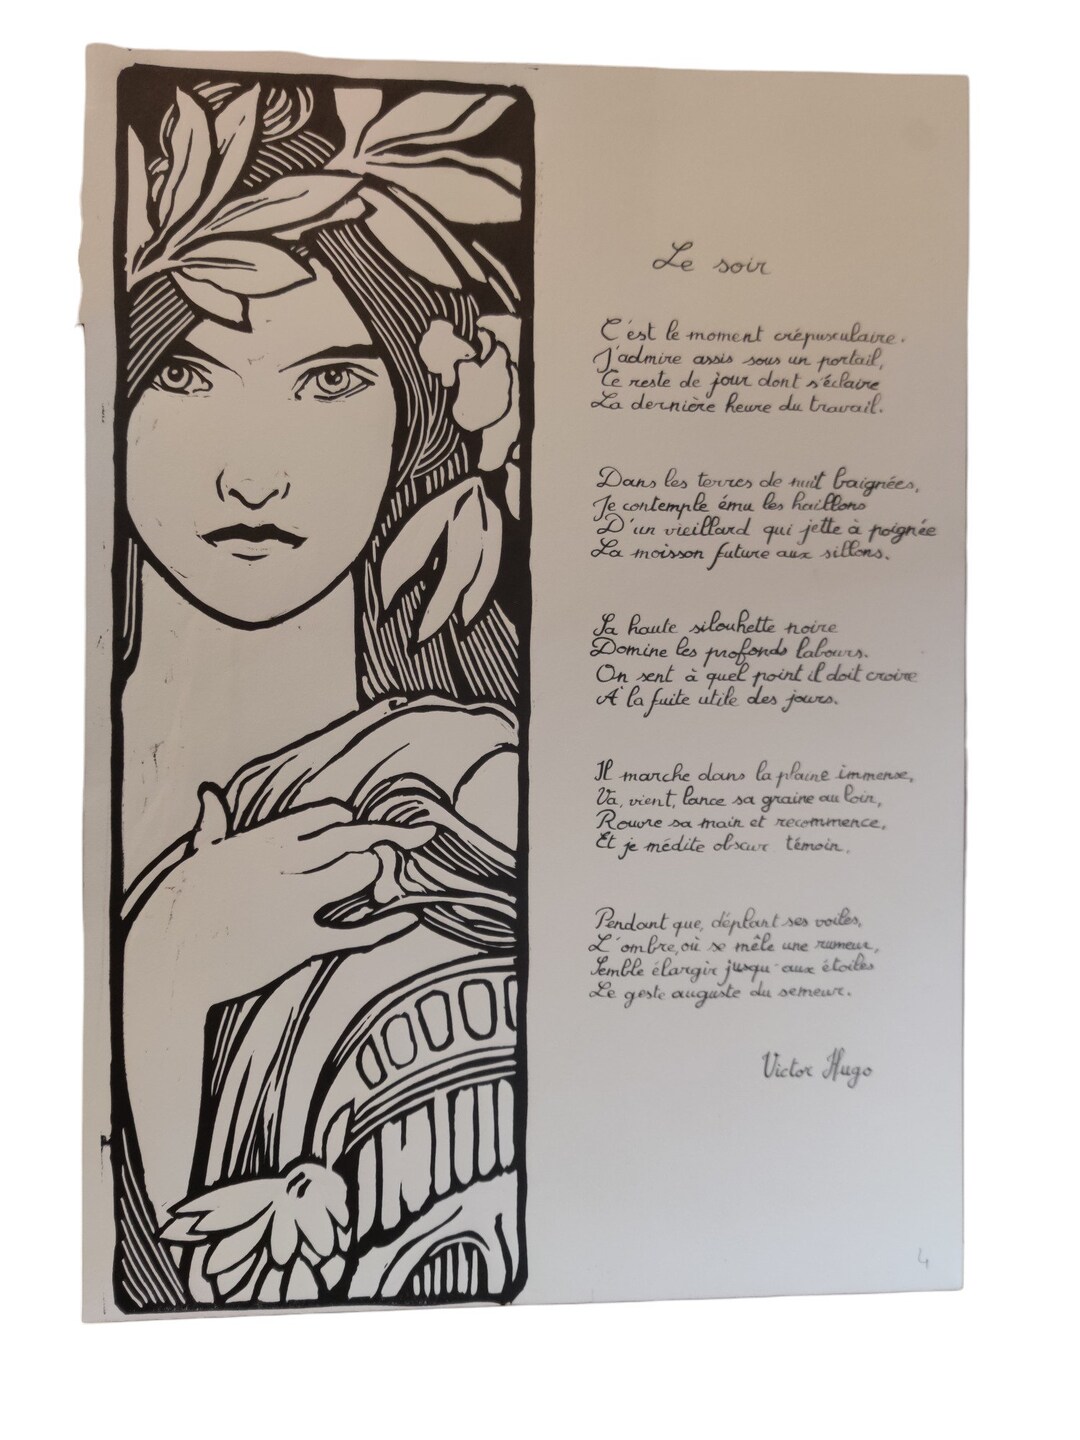 Le soir
C'est le moment crépusculaire.
J'admire assis sous un portail,
Ce reste de jour dont s'éclaire
La dernière heure du travail.
Dans les terres de nuit baignées,
Je contemple ému les haillons
D'un vieillard qui jette à poignée
La moisson future aux sillons.
Sa haute silouhette noire
Domine les profonds labours.
On sent à quel point il doit croire
A la fuite utile des jours.
Il marche dans la plaine immense,
Va, vient, lance sa graine au loin,
Rouvre sa main et recommence,
Et je médite obscur témoin.
Pendant que, déplant ses voiles,
L'ombre, où se mêle une rumeur,
Semble élargir jusqu'aux étoiles
Le geste auguste du semeur.
Victor Hugo
4